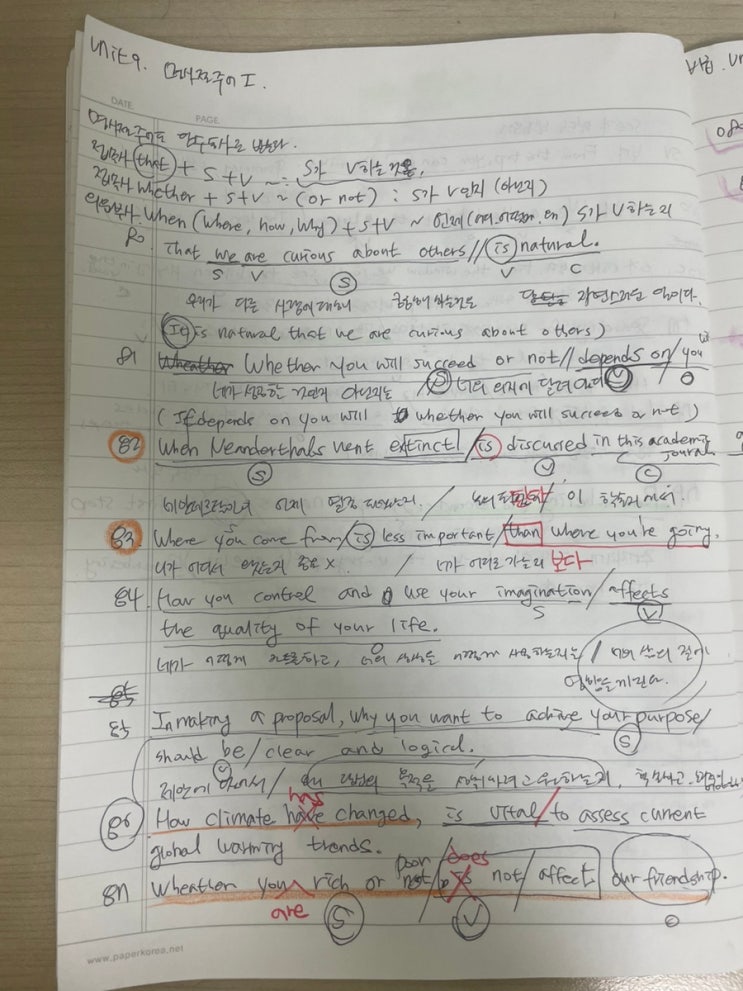 Unit 9. 명사절주어 I.
DATE PAGE
명사절주어도 단수
접속사 that + S+V ~ : S가 V하는 것은,
접속사 whether + S+V ~ (or not) : S가 V인지 (아닌지)
의문부사. When (where, how, why) + S+V ~ 언제 S가 V하는지
80 That we are curious about others // is natural.
S V S V C
우리가 다른 사람에 대해 궁금해 하는것은 자연스러운 일이다.
(It is natural that we are curious about others)
81 Wheather Whether you will succeed or not // depends on / you
네가 성공할 것인지 아닌지는 S 너의 의지에 달려 있다 V O
(If depends on you will whether you will succees or not)
82 When Neanderthals went extinct / is discussed in this academic
joural.
S V C
네안데르탈인이 언제 멸종 되었는지 / 이 학술지에서.
83 Where you come from / is less important / than where you're going.
S
네가 어디서 왔는지 중요 X. / 네가 어디로 가는지 보다
84. How you control and use your imagination / affects
S V
the quality of your life.
O
네가 어떻게 컨트롤하고, 너의 상상을 어떻게 사용하는지는 / 너의 삶의 질에
영향을 끼친다.
85
85 In making a proposal, why you want to achive your purpose /
S
should be / clear and logical.
V
제안에 있어서 /
has
86 How climate have changed, is vital / to assess current
global warming trends.
poor does
87 Wheather you rich or not / is not / affect our friendship.
are S V O
www.paperkorea.net